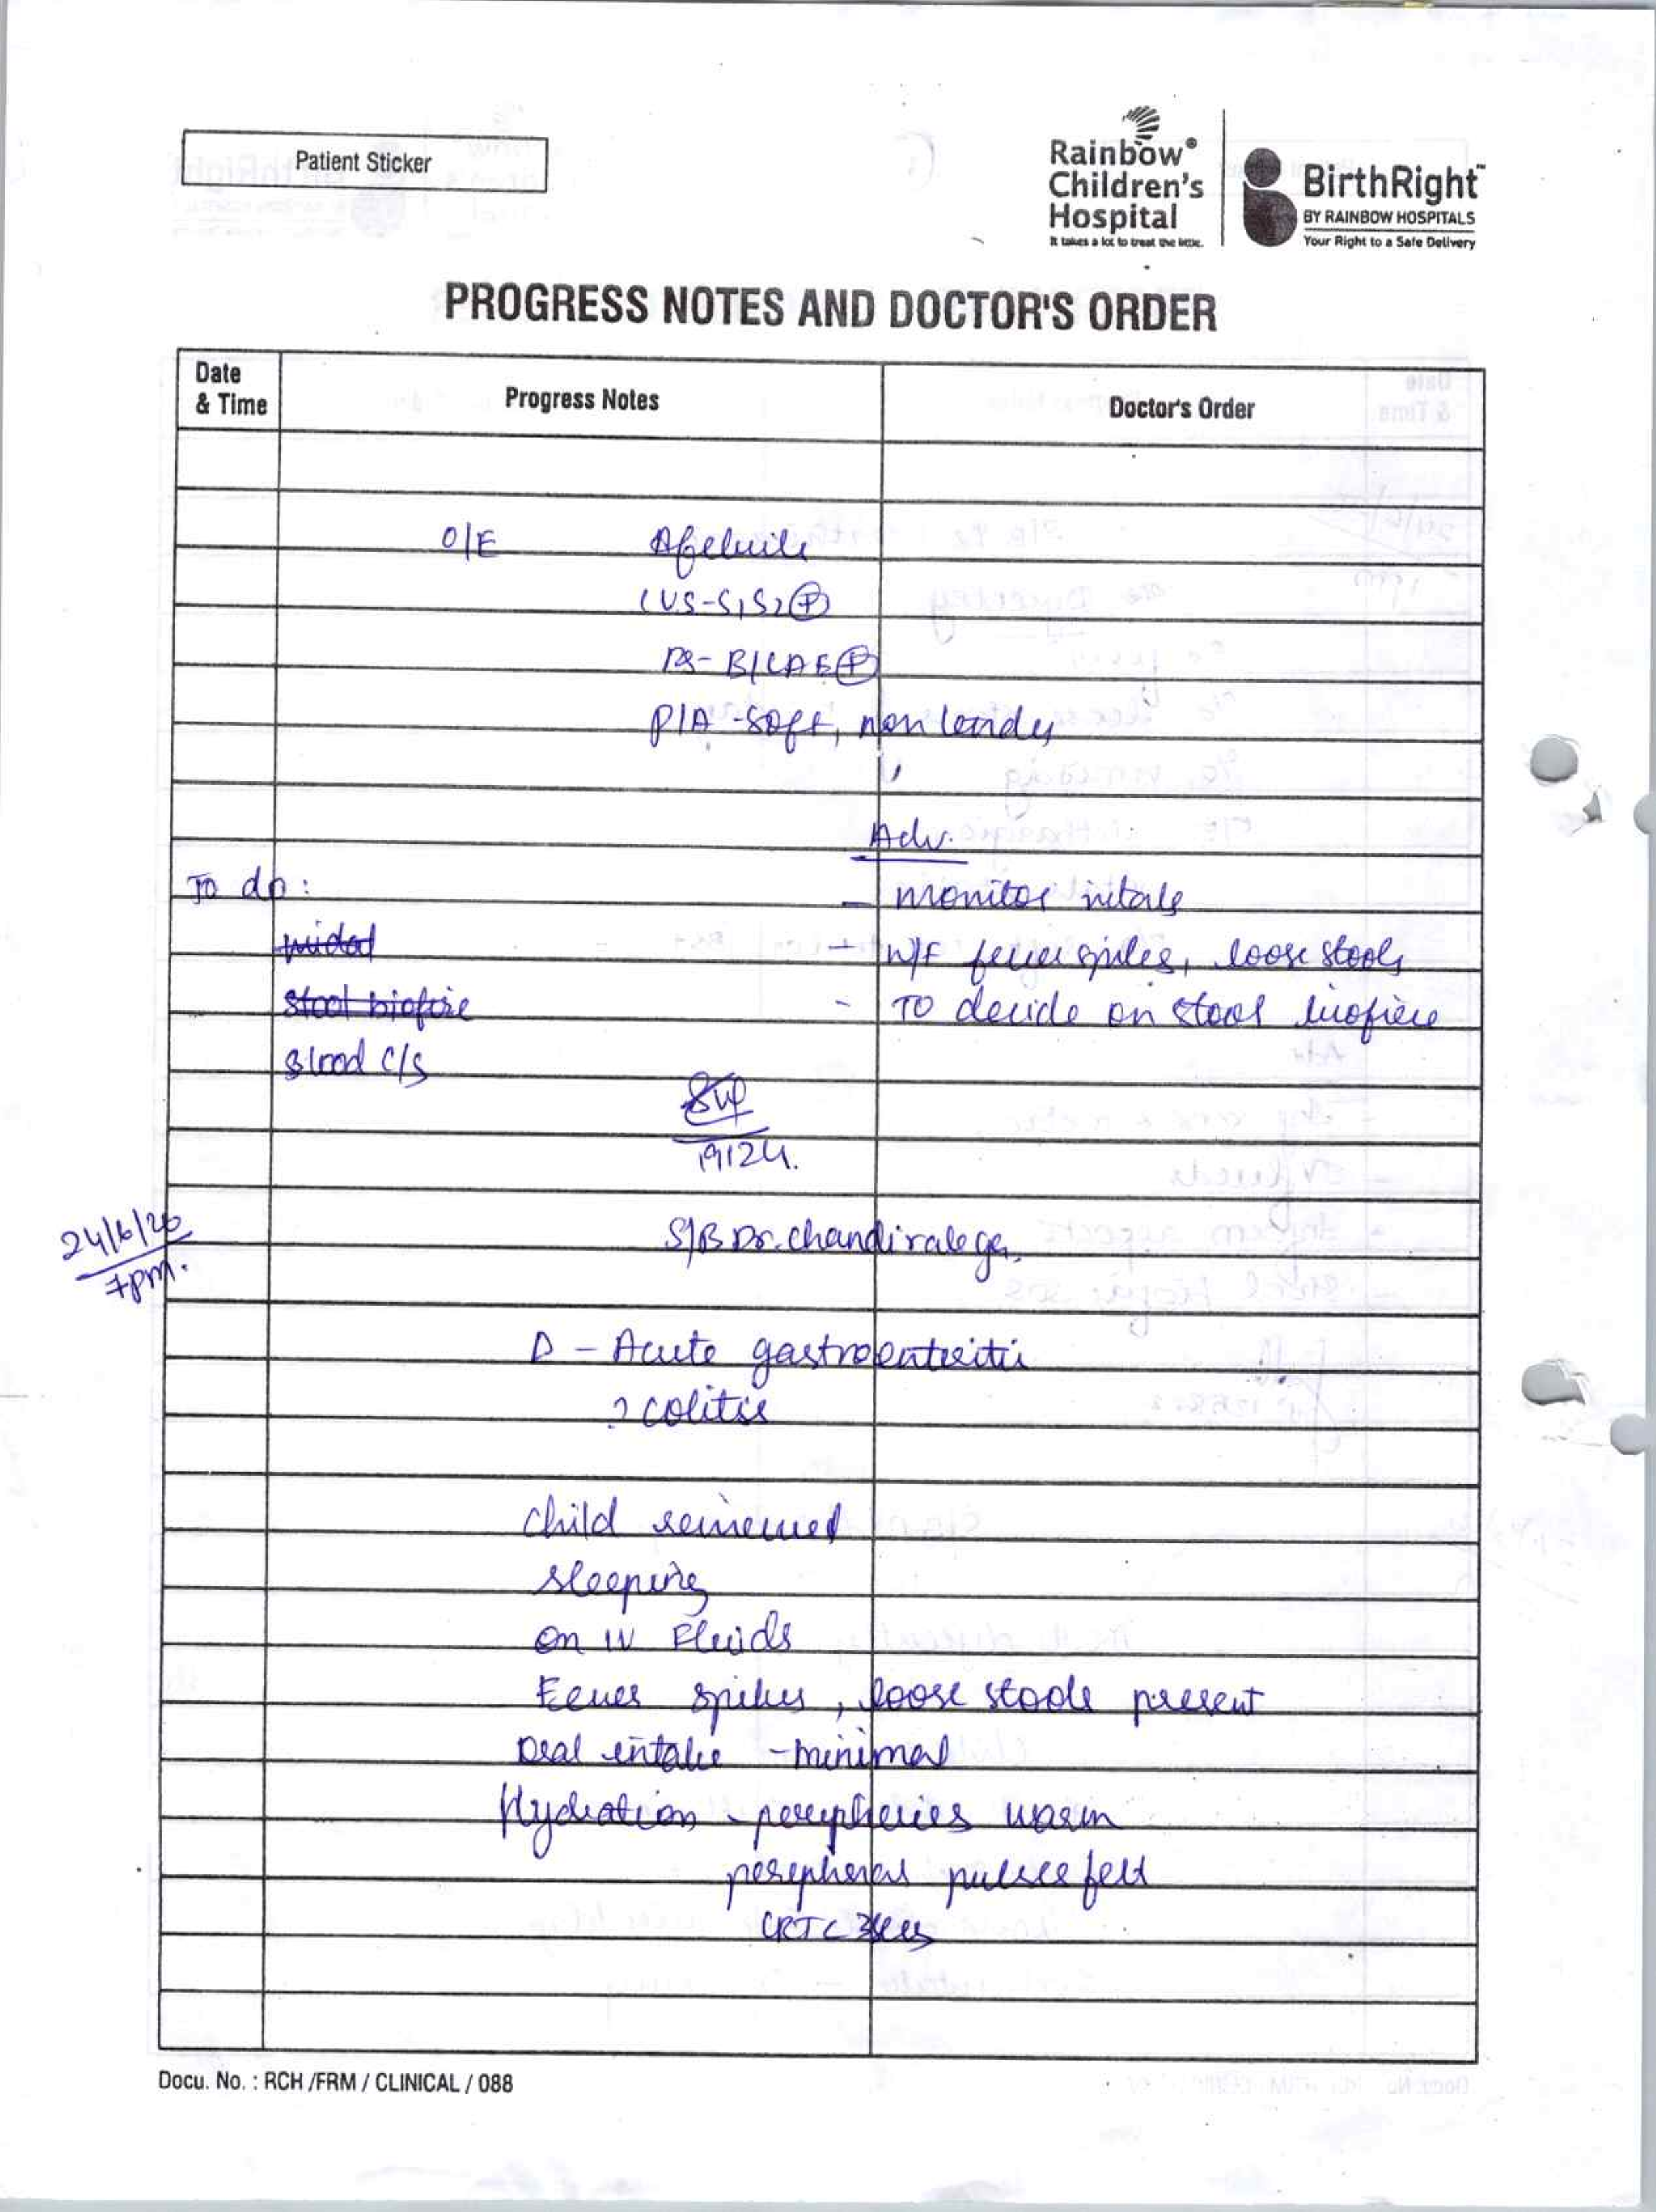 Patient Sticker
Rainbow®
Children's
Hospital
It takes a lot to treat the little.
BirthRight™
BY RAINBOW HOSPITALS
Your Right to a Safe Delivery
PROGRESS NOTES AND DOCTOR'S ORDER
Date & Time Progress Notes Doctor's Order
O/E Afebrile
CVS-S1S2 (P)
RS- B/L AE (P)
P/A -soft, non tender
Adv.
To do: - monitor vitals
- W/F fever spikes, loose stools
stool biofire - To decide on stool biofire
Blood C/S
19124.
24/6/26
7pm.
S/B Dr. Chandiralega.
D - Acute gastroenteritis
? colitis
child reviewed
sleeping
on IV Fluids
Fever spikes, loose stools present
Oral intake - minimal
Hydration - peripheries warm
peripheral pulses felt
CRT < 3secs
Docu. No. : RCH /FRM / CLINICAL / 088